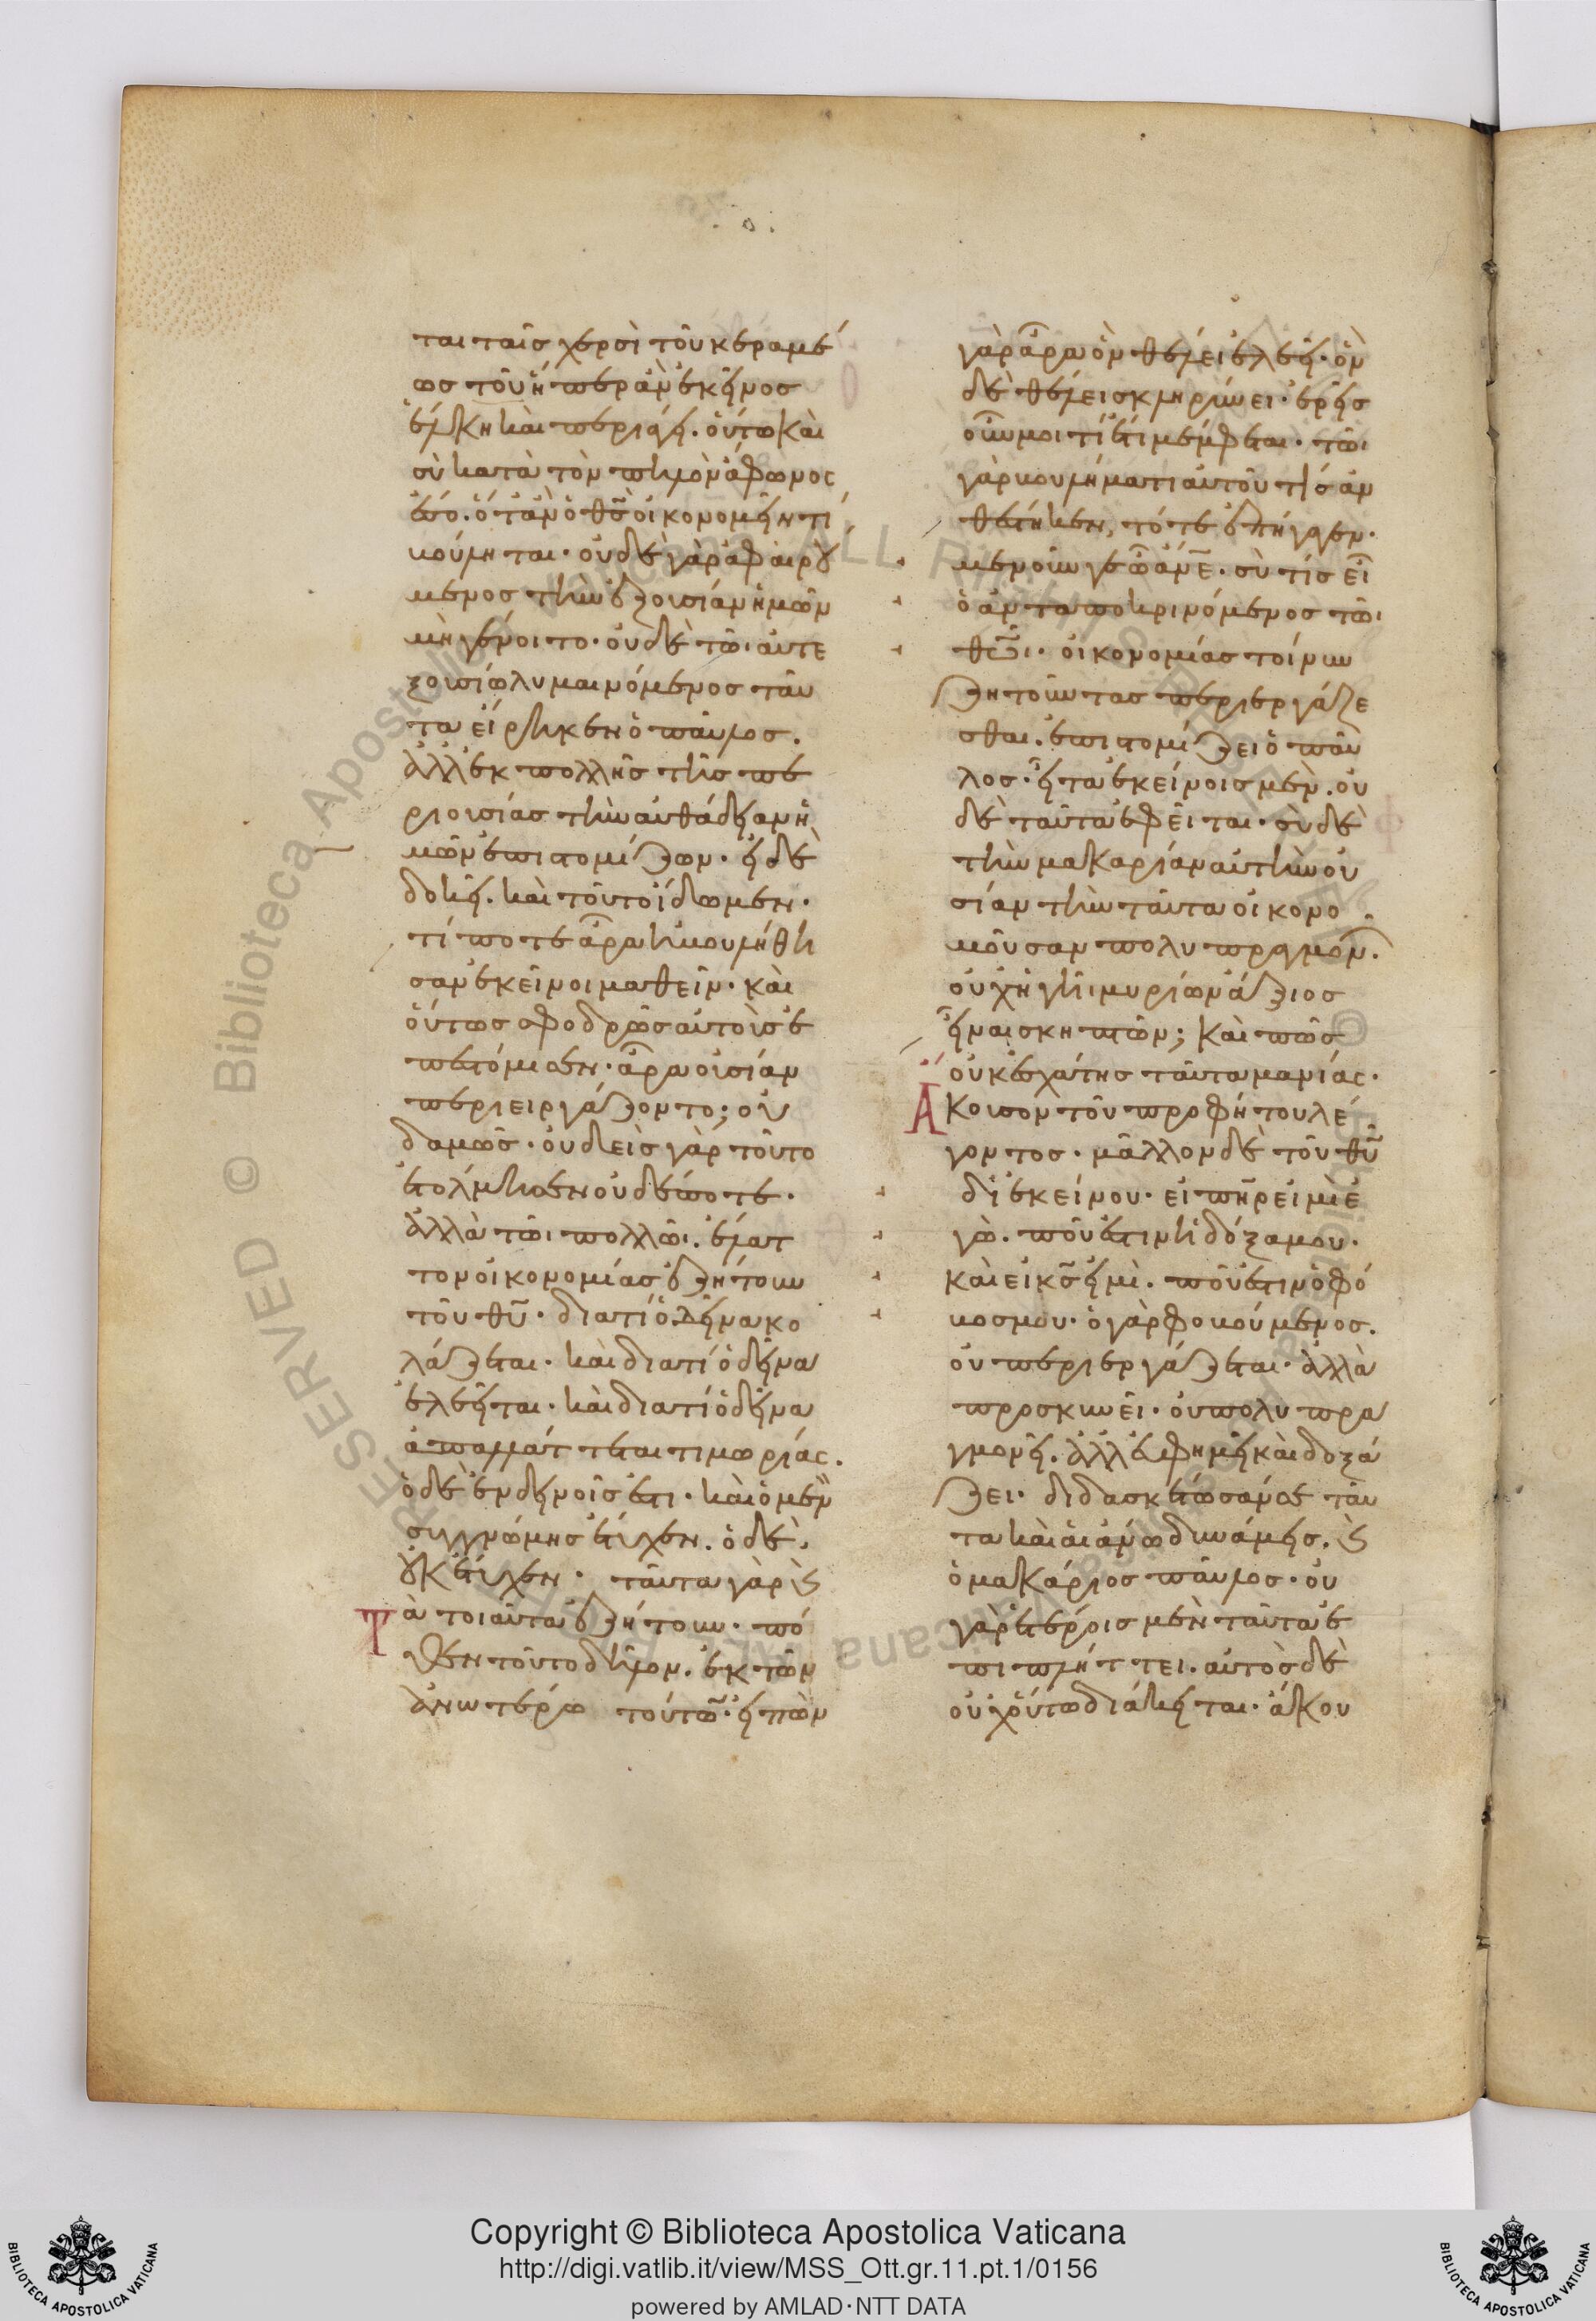 ται ταῖς χερσὶ τοῦ κεραμέ
ως τοῦ ἥπερ ἂν ἐκεῖνος
ἕλκη καὶ περιάγει. οὕτω καὶ
σὺ κατὰ τὸν πηλὸν ἄφωνος
ἔσο. ὅταν ὁ θς̅ οἰκονομεῖν τι
βούληται· οὐδὲ γὰρ ἀφαιρού
μενος τὴν ἐξουσίαν ἡμῶν
μὴ γένοιτο· οὐδὲ τῶι αὐτε
ξουσίω λυμαινόμενος ταῦ
τα εἴρηκεν ὁ παῦλος.
ἀλλ' ἐκ πολλῆς τῆς πε
ριουσίας τὴν αὐθάδειαν ἡ
μῶν ἐπιστομίζων· εἰ δὲ
δοκεῖ. καὶ τοῦτο ἴδωμεν·
τί ποτε ἆρα ἠβουλήθη
σαν ἐκεῖνοι μαθεῖν· καὶ
οὕτως σφοδρῶς αὐτοὺς ἐ
πεστόμισεν· ἆρα οὐσίαν
περιειργάζοντο; οὐ
δαμῶς· οὐδεὶς γὰρ τοῦτο
ἐτόλμησεν οὐδέποτε·
ἀλλὰ τῶι πολλῶι. ἔλατ
τον οἰκονομίας ἐζήτουν
τοῦ θυ̅· διατί ὁ δεῖνα κο
λάζεται· καὶ διατί ὁ δεῖνα
ἐλεεῖται· καὶ διατί ὁ δεῖνα
ἀπαλλάττεται τιμωρίας.
ὁ δὲ ἐν δεινοῖς ἐστι· καὶ ὁ μὲν
συγγνώμης ἔτυχεν. ὁ δὲ.
οὐκ ἔτυχεν· ταῦτα γὰρ καὶ
τὰ τοιαῦτα ἐζήτουν· πό
θεν τοῦτο δῆλον. ἐκ τῶν
ἀνωτέρω τούτων· εἰπὼν
γὰρ ἆρα ὃν θέλει ἐλεεῖ· ὃν
δὲ θέλει σκληρύνει· ἐρεῖς
οὖν μοι τί ἔτι μέμφεται· τῶι
γὰρ βουλήματι αὐτοῦ τίς ἀν
θέστηκεν, τότε ἐπήγαγεν·
μενοῦνγε ὦ ἄνε̅· σὺ τίς εἶ
ὁ ἀνταποκρινόμενος τῶι
θῶι̅· οἰκονομίας τοίνυν
ζητοῦντας περιεργάζε
σθαι. ἐπιστομίζει ὁ παῦ
λος· εἶτα ἐκείνοις μὲν. οὐ
δὲ ταῦτα ἐφεῖται· σὺ δὲ
τὴν μακαρίαν αὐτὴν οὐ
σίαν τὴν πάντα οἰκονο
μοῦσαν πολυπραγμονῶν.
οὐχ ἡγῆι μυρίων ἄξιος
εἶναι σκηπτῶν; καὶ πῶς
οὐκ ἐσχάτης ταῦτα μανίας·
Ἄκουσον τοῦ προφήτου λέ
γοντος· μᾶλλον δὲ τοῦ θυ̅
δι' ἐκείνου· εἰ πη̅ρ εἰμὶ ἐ
γὼ. ποῦ ἐστιν ἡ δόξα μου·
καὶ εἰ κς̅ εἰμὶ. ποῦ ἐστιν ὁ φό
βος μου· ὁ γὰρ φοβούμενος.
οὐ περιεργάζεται· ἀλλὰ
προσκυνεῖ· οὐ πολυπρα
γμονεῖ. ἀλλ' εὐφημεῖ καὶ δοξά
ζει· διδασκέτωσάν σε ταῦ
τα καὶ αἱ ἄνω δυνάμεις. καὶ
ὁ μακάριος παῦλος· οὐ
γὰρ ἑτέροις μὲν ταῦτα ἐ
πιπλήττει. αὐτὸς δὲ
οὐχ οὕτω διάκειται· ἄκου